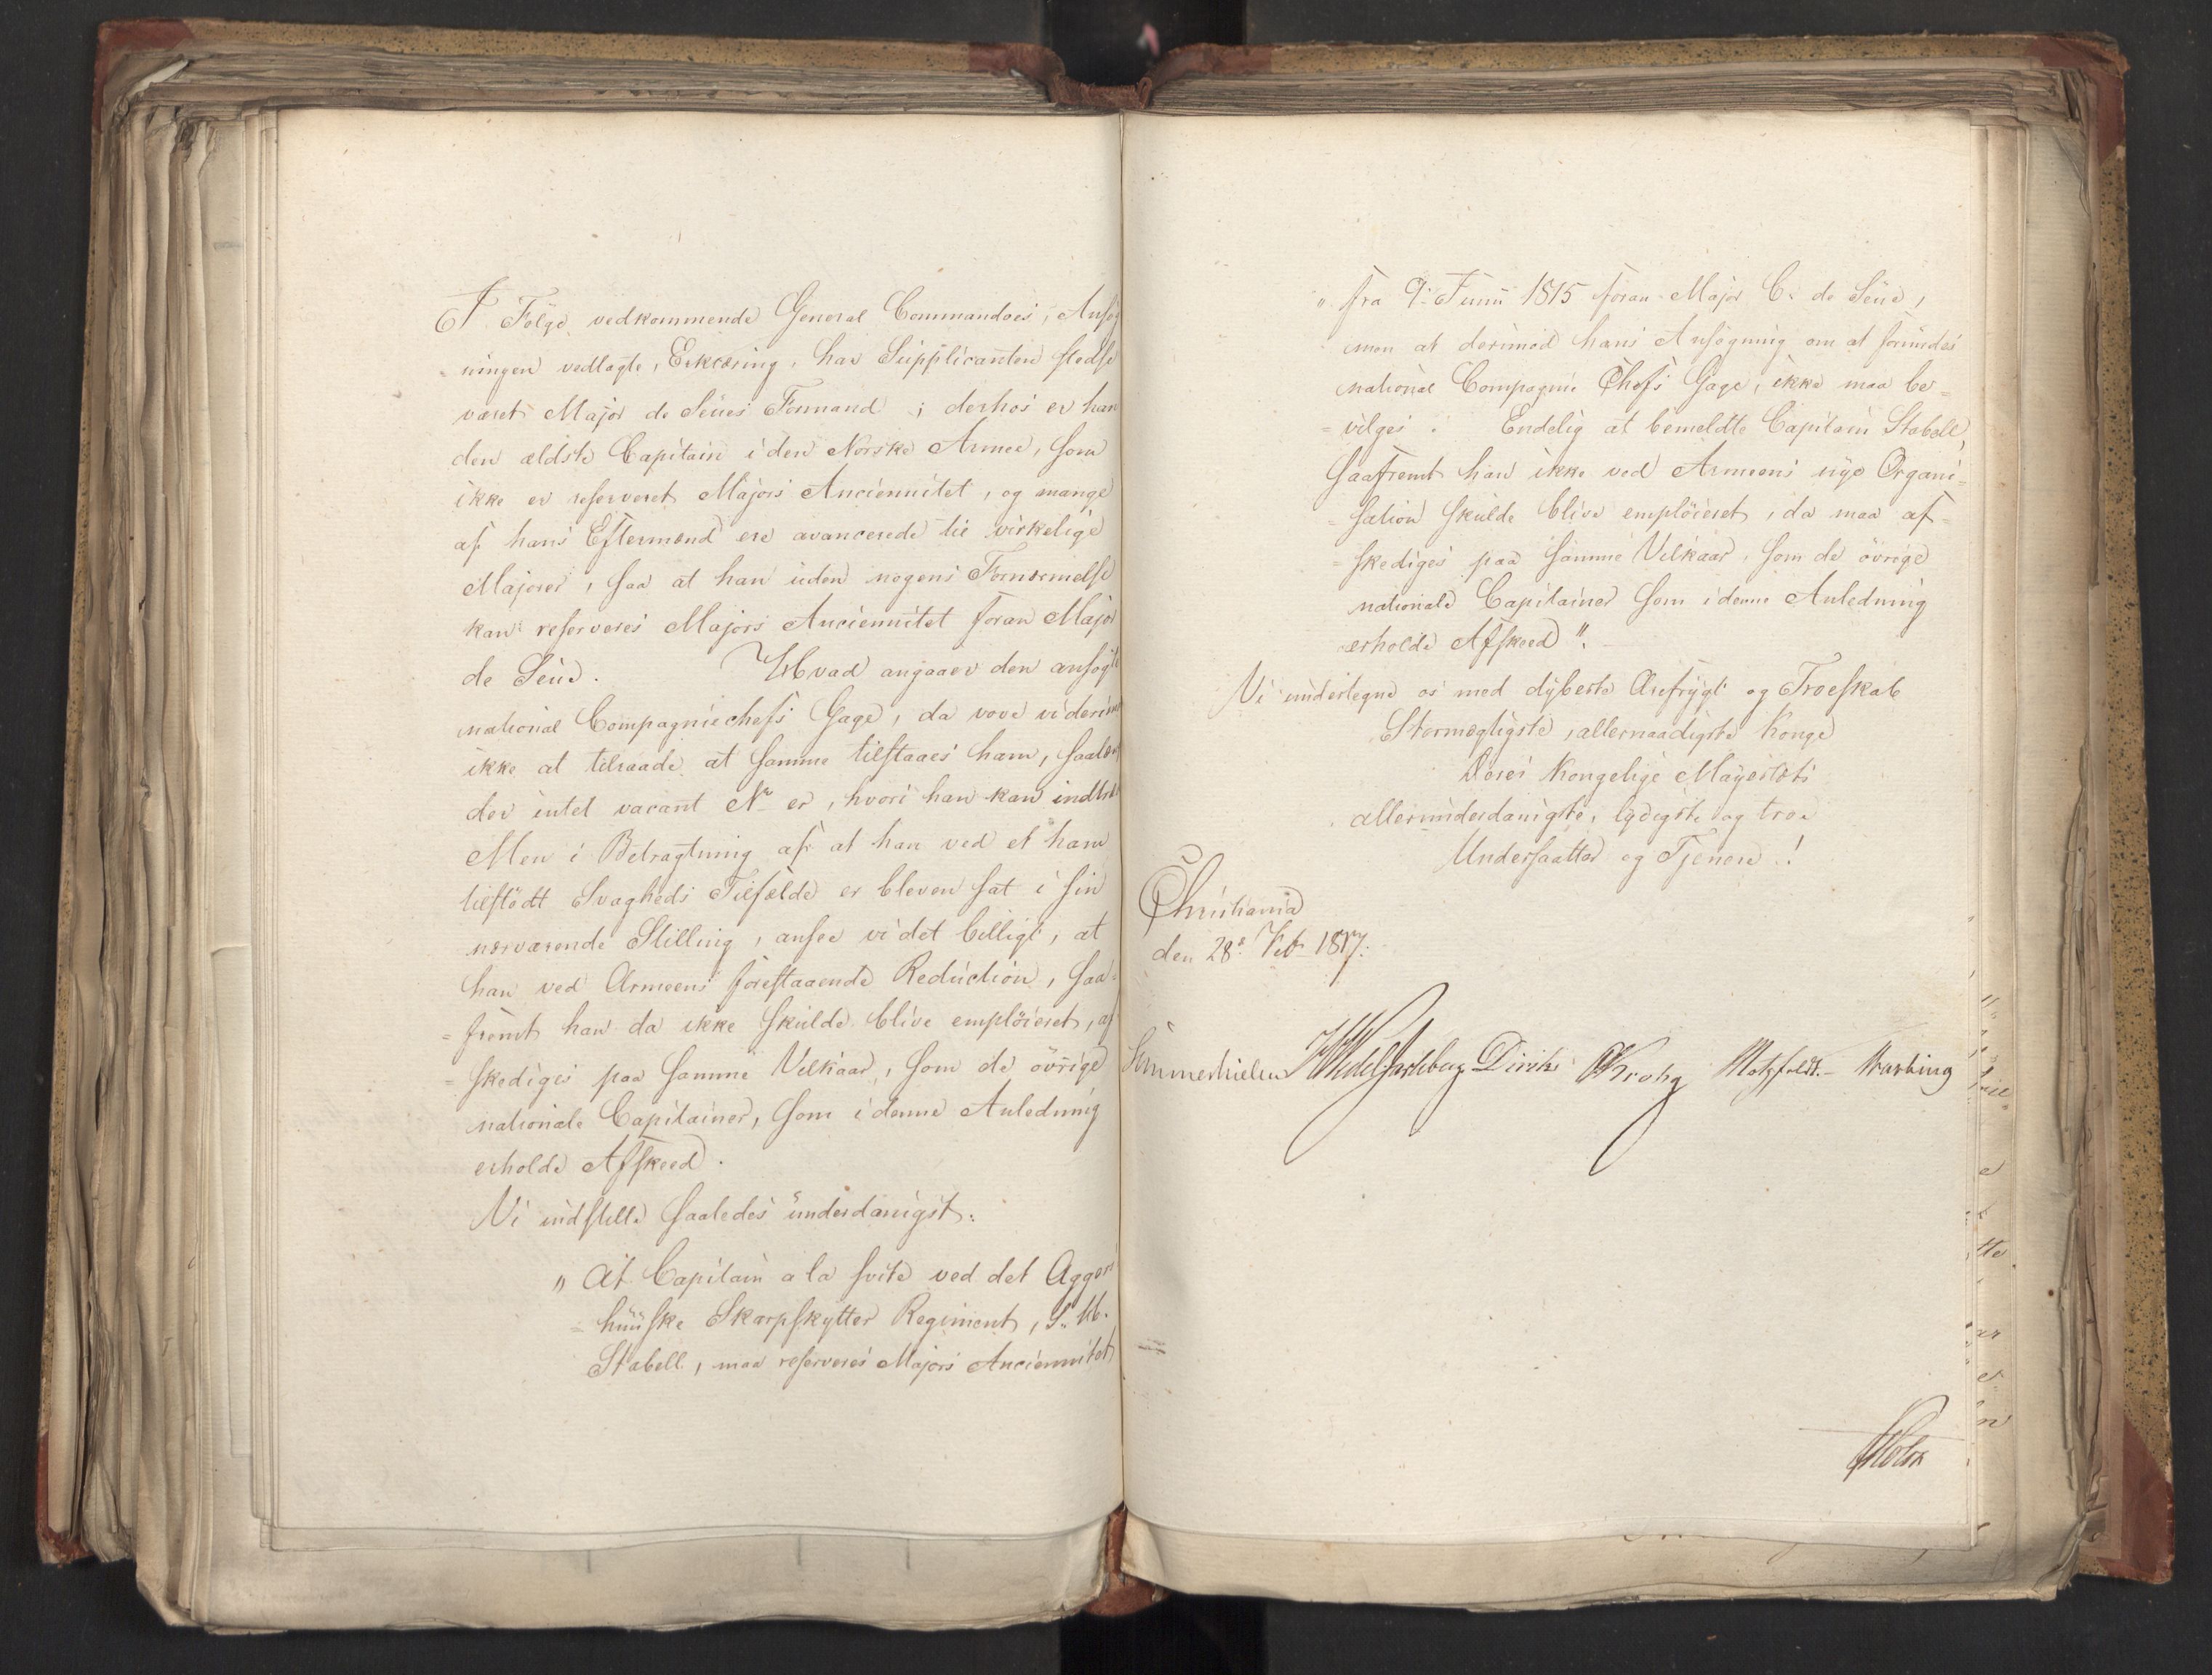 I Følge vedkommende General Commandoes, Ansøg
ningen vedlagte, Erklæring, har Supplicanten stedse
været Major de Seues Formand; derhos er han
den ældste Capitain i den Norske Armee, som
ikke er reserveret Majors Anciennitet, og mange
af hans Eftermænd ere avancerede til virkelige
Majorer, saa at han uden nogens Fornærmelse
kan reserveres Majors Anciennitet foran Major
de Seue. Hvad angaaer den ansøgte
national Compagniechefs Gage, da vove vi derimod
ikke at tilraade at samme tilstaaes ham, saalænge
der intet vacant No er, hvori han kan indtræde
Men i Betragtning af at han ved et ham
tilstødt Svagheds Tilfælde er bleven sat i sin
nærværende Stilling, ansee vi det billigt, at
han ved Armeens forestaaende Reduction, saa=
=fremt han da ikke skulde blive emplöieret, af
=skediges paa samme Vilkaar, som de övrige
nationale Capitainer, som i denne Anledning
erholde Afskeed.
Vi indstille saaledes underdanigst:
"At Capitain a la svite ved det Aggers
=huuske Skarpskytter Regiment, S. H.
Stabell, maa reserveres Majors Anciennitet
" fra 9. Junii 1815 foran Major C. de Seue,
men at derimod hans Ansögning om at forundes
national Compagnie Chefs Gage, ikke maa be=
=vilges. Endelig at bemeldte Capitain Stabell,
saafremt han ikke ved Armeens nye Organi=
=sation skulde blive emplöieret, da maa af=
=skediges paa samme Vilkaar, som de övrige
nationale Capitainer som i denne Anledning
erholde Afskeed".
Vi undertegne os med dybeste Ærefrygt og Troeskab
Stormægtigste, allernaadigste Konge
Deres Kongelige Mayestæts
allerunderdanigste, lydigste og troe
Undersaatter og Tjenere!
Christiania
den 28e Feb 1817.
Sommerhielm Diriks Krohg Motzfeldt Wasking
Holst